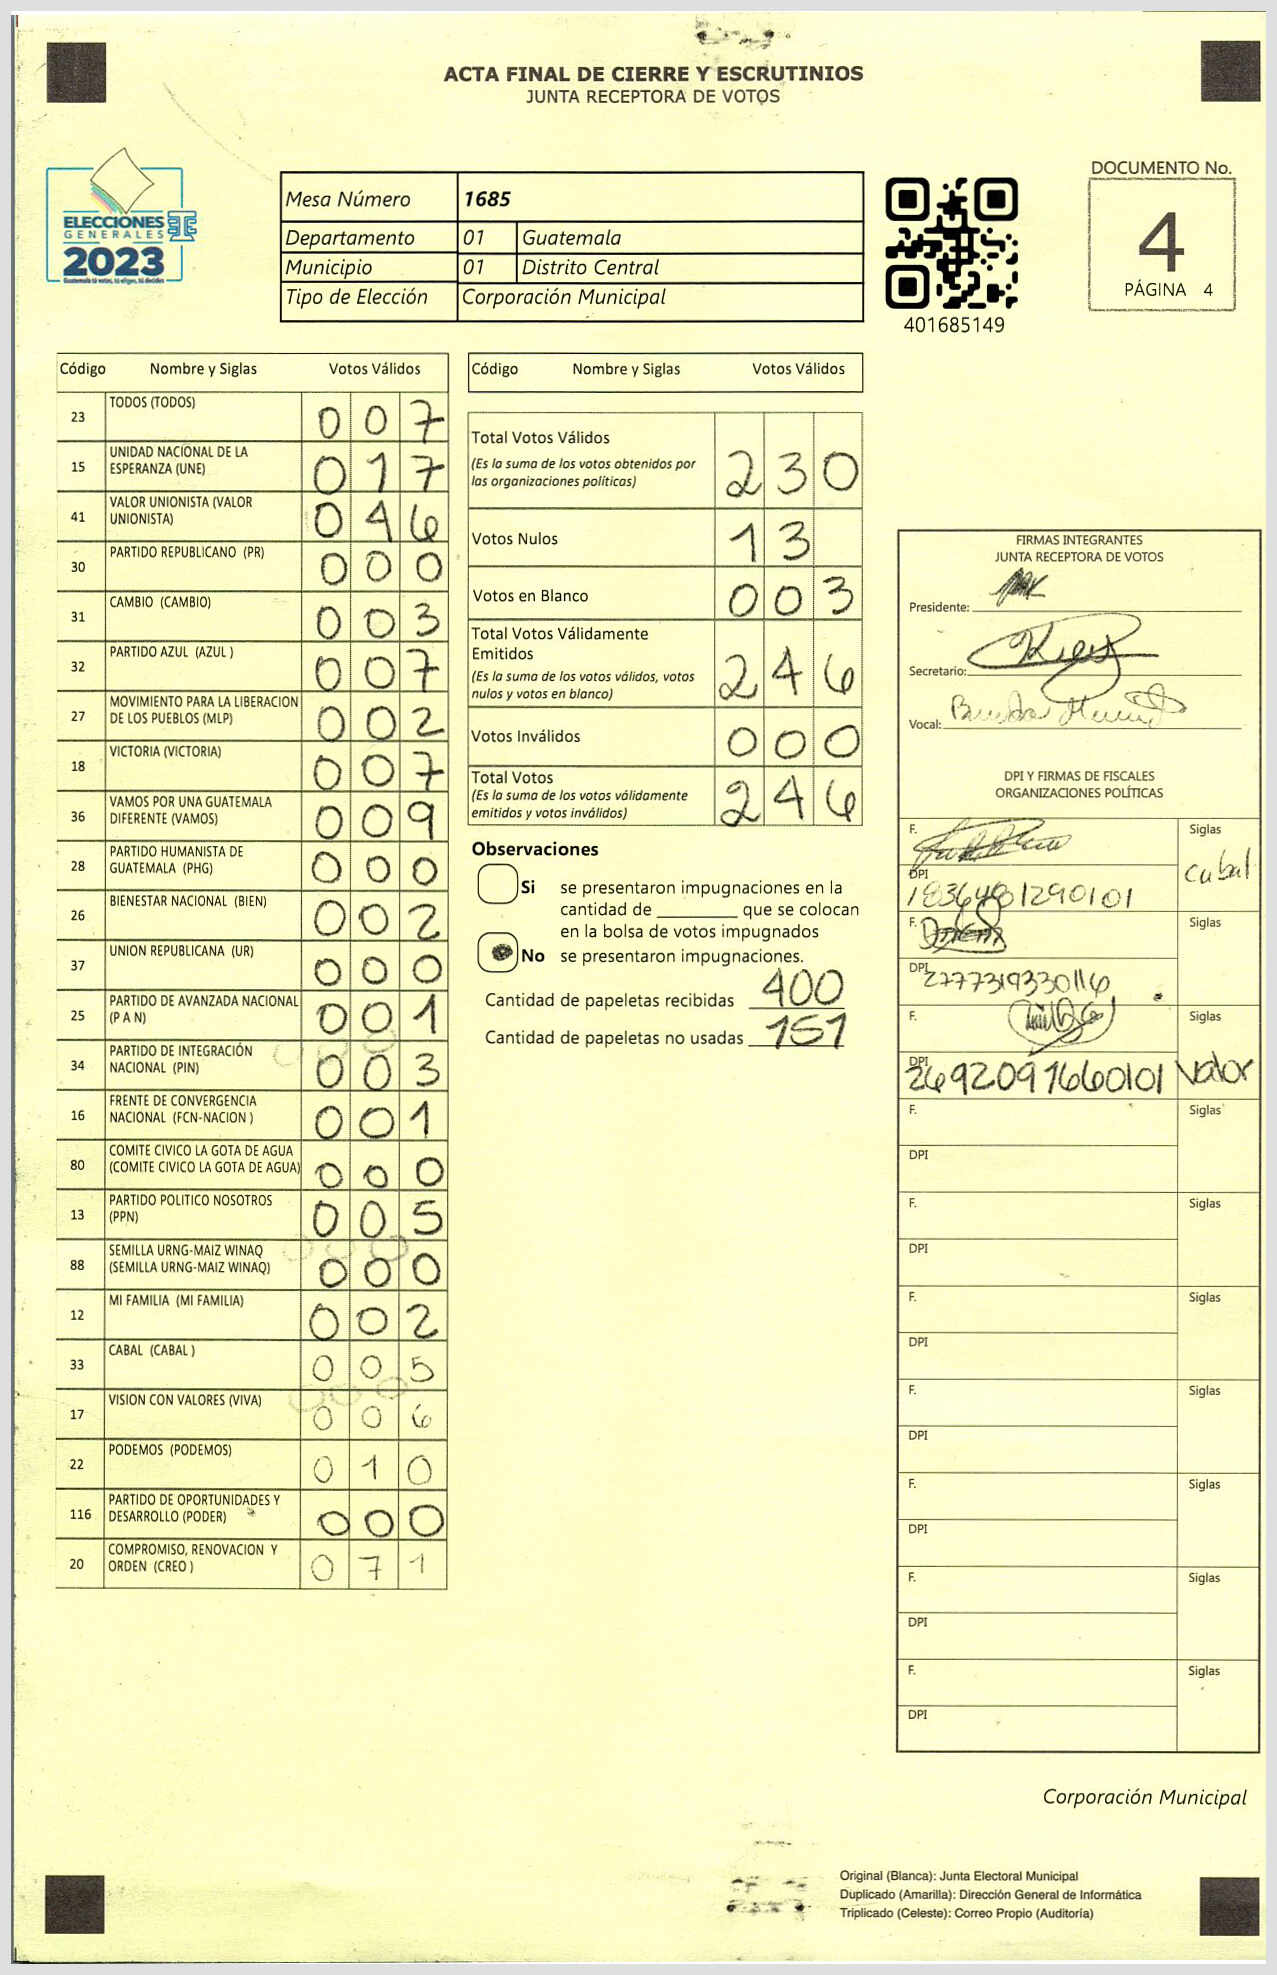 ACTA FINAL DE CIERRE Y ESCRUTINIOS
JUNTA RECEPTORA DE VOTOS
ELECCIONES
GENERALES
2023
Guatemala tú votas, tú eliges, tú decides
Mesa Número 1685
Departamento 01 Guatemala
Municipio 01 Distrito Central
Tipo de Elección Corporación Municipal
401685149
DOCUMENTO No.
4
PÁGINA 4
Código Nombre y Siglas Votos Válidos
23 TODOS (TODOS) 007
15 UNIDAD NACIONAL DE LA
ESPERANZA (UNE) 017
41 VALOR UNIONISTA (VALOR
UNIONISTA) 046
30 PARTIDO REPUBLICANO (PR) 000
31 CAMBIO (CAMBIO) 003
32 PARTIDO AZUL (AZUL ) 007
27 MOVIMIENTO PARA LA LIBERACION
DE LOS PUEBLOS (MLP) 002
18 VICTORIA (VICTORIA) 007
36 VAMOS POR UNA GUATEMALA
DIFERENTE (VAMOS) 009
28 PARTIDO HUMANISTA DE
GUATEMALA (PHG) 000
26 BIENESTAR NACIONAL (BIEN) 002
37 UNION REPUBLICANA (UR) 000
25 PARTIDO DE AVANZADA NACIONAL
(P A N) 001
34 PARTIDO DE INTEGRACIÓN
NACIONAL (PIN) 003
16 FRENTE DE CONVERGENCIA
NACIONAL (FCN-NACION ) 001
80 COMITE CIVICO LA GOTA DE AGUA
(COMITE CIVICO LA GOTA DE AGUA) 000
13 PARTIDO POLITICO NOSOTROS
(PPN) 005
88 SEMILLA URNG-MAIZ WINAQ
(SEMILLA URNG-MAIZ WINAQ) 000
12 MI FAMILIA (MI FAMILIA) 002
33 CABAL (CABAL ) 005
17 VISION CON VALORES (VIVA) 006
22 PODEMOS (PODEMOS) 010
116 PARTIDO DE OPORTUNIDADES Y
DESARROLLO (PODER) 000
20 COMPROMISO, RENOVACION Y
ORDEN (CREO ) 071
Código Nombre y Siglas Votos Válidos
Total Votos Válidos
(Es la suma de los votos obtenidos por
las organizaciones políticas) 230
Votos Nulos 13
Votos en Blanco 003
Total Votos Válidamente
Emitidos
(Es la suma de los votos válidos, votos
nulos y votos en blanco) 246
Votos Inválidos 000
Total Votos
(Es la suma de los votos válidamente
emitidos y votos inválidos) 246
Observaciones
Si se presentaron impugnaciones en la
cantidad de ________ que se colocan
en la bolsa de votos impugnados
No se presentaron impugnaciones.
Cantidad de papeletas recibidas 400
Cantidad de papeletas no usadas 151
FIRMAS INTEGRANTES
JUNTA RECEPTORA DE VOTOS
Presidente:
Secretario:
Vocal:
DPI Y FIRMAS DE FISCALES
ORGANIZACIONES POLÍTICAS
F. Siglas
cabal
DPI
F. Siglas
DPI 2777319330116
F. Siglas
DPI 2692091660101 Valor
F. Siglas
DPI
F. Siglas
DPI
F. Siglas
DPI
F. Siglas
DPI
F. Siglas
DPI
F. Siglas
DPI
F. Siglas
DPI
Corporación Municipal
Original (Blanca): Junta Electoral Municipal
Duplicado (Amarilla): Dirección General de Informática
Triplicado (Celeste): Correo Propio (Auditoría)